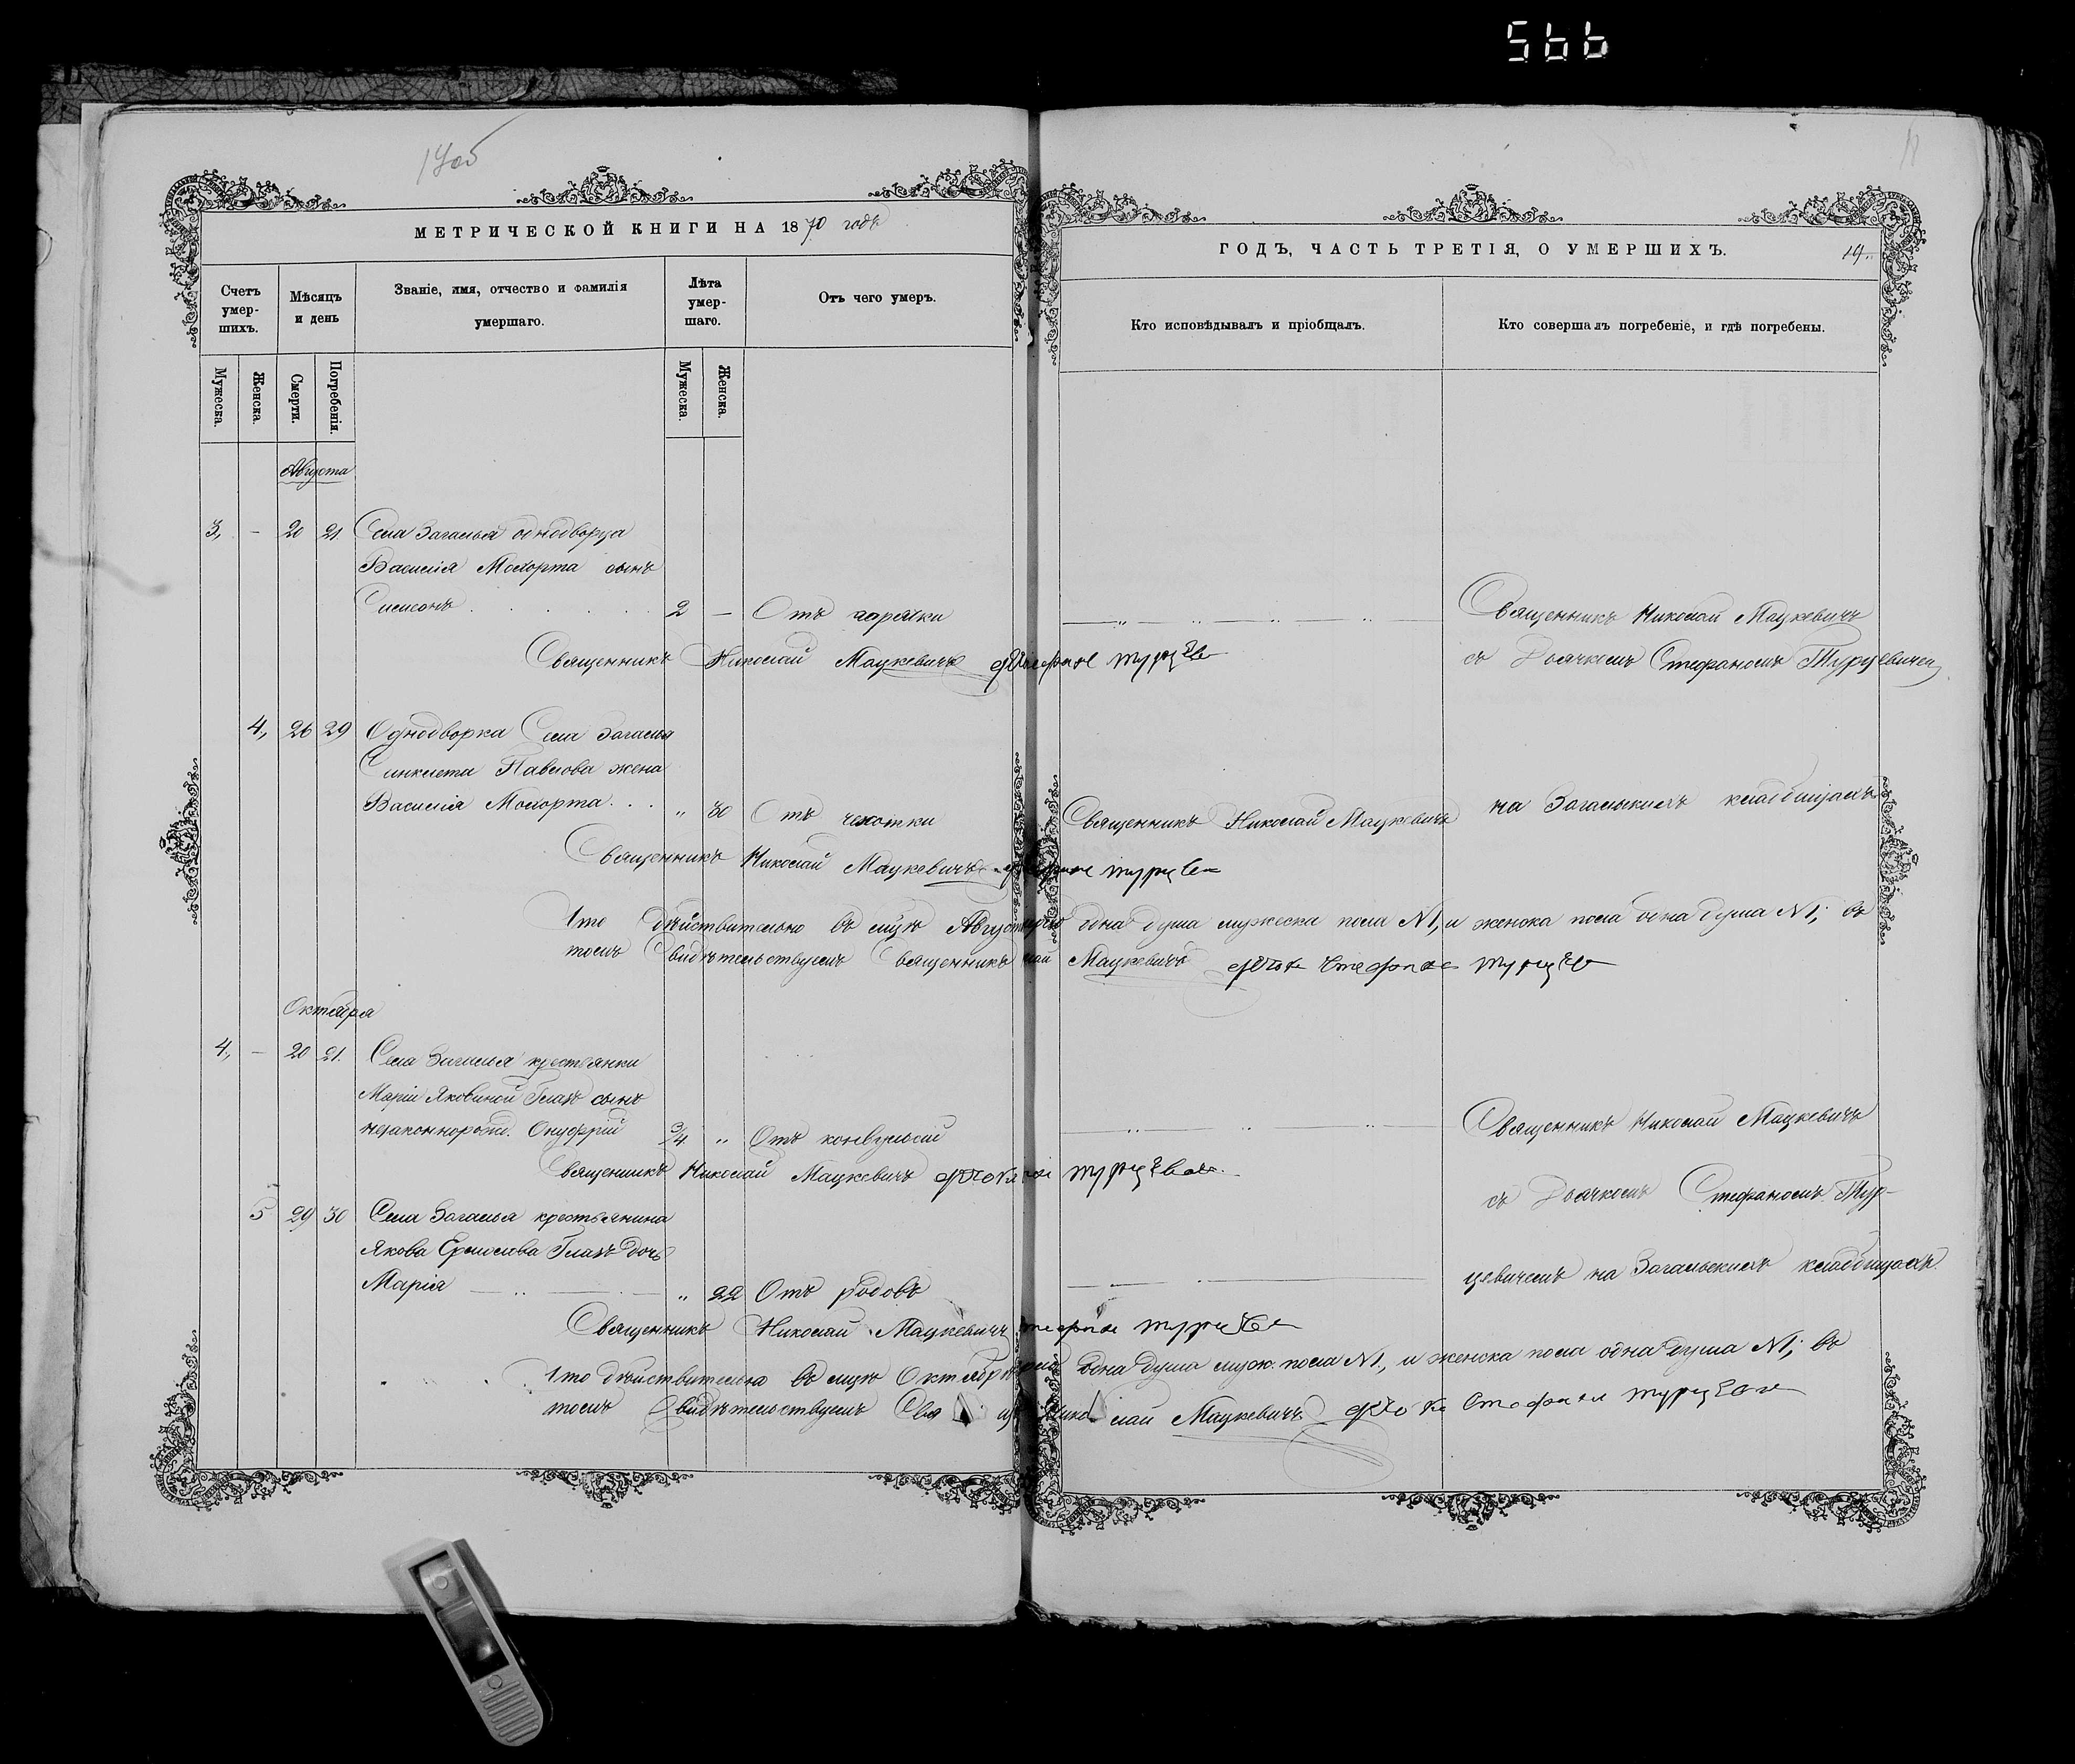 566
МЕТРИЧЕСКОЙ КНИГИ НА 1870 годъ
Счетъ умер-шихъ.
Мѣсяцъ и день
Званіе, имя, отчество и фамилія умершаго.
Лѣта умер-шаго.
Отъ чего умеръ.
Мужеска.
Женска.
Смерти.
Погребенія.
Мужеска.
Женска.
Августа
3, — 20 21 Села Загалья однодворца
Василія Мокорта сынъ
Симеонъ 2 — Отъ горячки
Священникъ Николай Мацкевичъ
4, 26 29 Однодворка Села Загалья
Синклета Павлова жена
Василія Мокорта . . . „ 30 Отъ чахотки
Священникъ Николай Мацкевичъ
Что дѣйствительно въ мцѣ Августѣ
томъ Свидѣтельствуемъ Священникъ
Октября
4, — 20 21. Села Загалья крестьянки
Маріи Яковиной Глазъ сынъ
незаконнорожд. Онуфрій 3/4 „ Отъ конвульсій
Священникъ Николай Мацкевичъ
5 29 30 Села Загалья крестьянина
Якова Ермолова Глазъ дочь
Марія „ 22 Отъ родовъ
Священникъ Николай Мацкевичъ
Что дѣйствительно въ мцѣ Октябрѣ
томъ Свидѣтельствуемъ
ГОДЪ, ЧАСТЬ ТРЕТІЯ, О УМЕРШИХЪ.
19.
Кто исповѣдывалъ и пріобщалъ.
Кто совершалъ погребеніе, и гдѣ погребены.
Священникъ Николай Мацкевичъ
съ Дьячкомъ Стефаномъ Турцевичем
Священникъ Николай Мацкевичъ
на Загальскихъ кладбищахъ
одна душа мужеска пола №1, и женска пола одна душа №1; въ
Мацкевичъ Дьячокъ Стефанъ Турцевич
Священникъ Николай Мацкевичъ
съ Дьячкомъ Стефаномъ Тур-
цевичемъ на Загальскихъ кладбищахъ.
одна душа муж: пола №1, и женска пола одна душа №1; въ
Николай Мацкевичъ Дьячокъ Стефанъ Турцевич